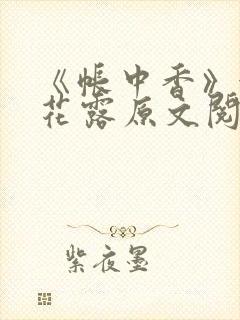 《帐中香》
花露原文阅
紫夜墨